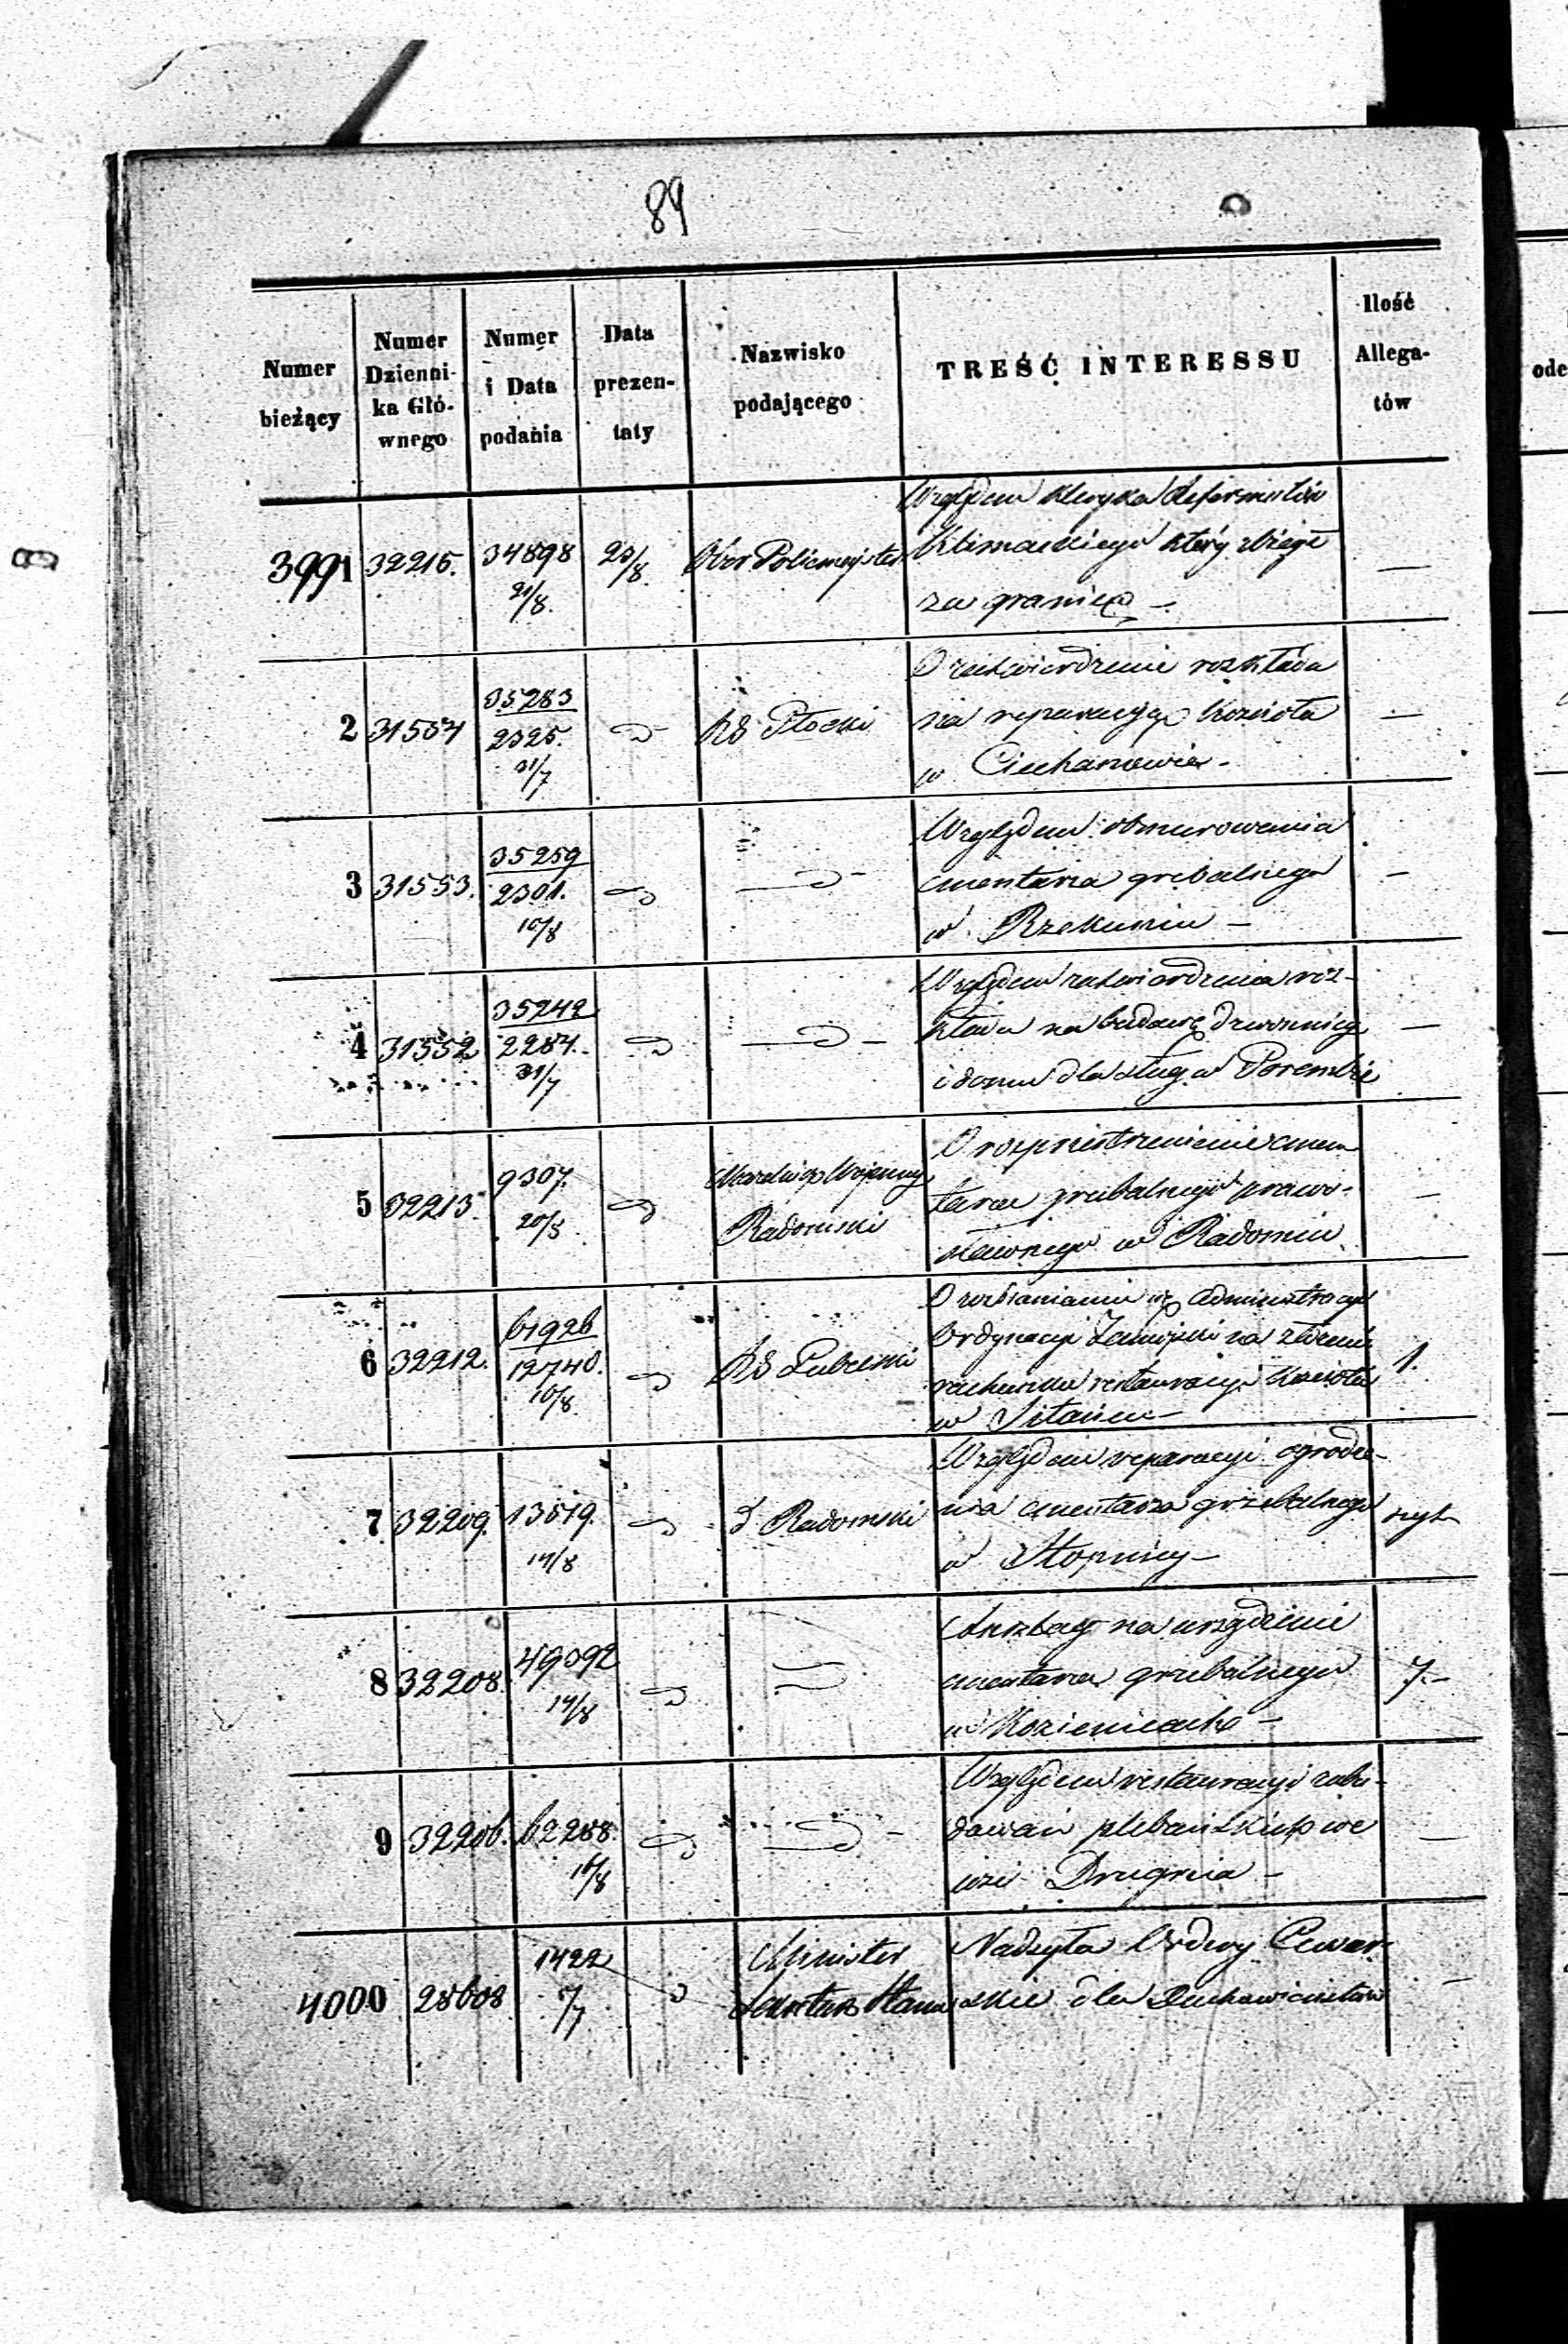 89
Numer bieżący
Numer Dzienni- ka Głó- wnego
Numer i Data podania
Data prezen- taty
Nazwisko podającego
TREŚĆ INTERESSU
Ilość Allega- tów
ode
3991 32215. 34898 21/8. 23/8. Ober Policmejster
Względem kleryka Reformatów
Klimackiego który zbiegł
za granicę —
2 31554 35283 2325. 31/7 RG Płocki
O zatwierdzenie rozkładu
na reparacyją kościoła
w Ciechanowie —
3 31553. 35259 2301. 10/8
Względem obmurowania
cmentarza grzebalnego
w Rzekuniu —
4 31552 35242 2284. 31/7
Względem zatwierdzenia roz-
kładu na budowę dzwonnicy
i domu dla sług w Porembie
5 32213. 9307. 20/8 Naczelnik Wojenny Radomski
O rozprzestrzenienie cmen
tarza grzebalnego prawo-
sławnego w Radomiu
6 32212. 61926 12740. 10/8 RG Lubelski
Administracyi
Ordynacyi Zamojski na złożenie
rachunku restauracyi kościoła
w Sitańcu —
1.
7 32209. 13519. 14/8 d Radomski
Względem reparacyi ogrodze-
nia cmentarza grzebalnego
w Stopnicy —
szyt
8 32208. 49392 14/8
Anszlag na urządzenie
cmentarza grzebalnego
w Kozienicach —
7. —
9 32206. 62288. 16/8
Względem restauracyi zabu-
dowań plebańskich we
wsi Drugnia —
4000 28608 1422 7/7 Minister Sekretarz Stanu
Nadsyła Ordery Cesar-
skie dla Duchowieństwa